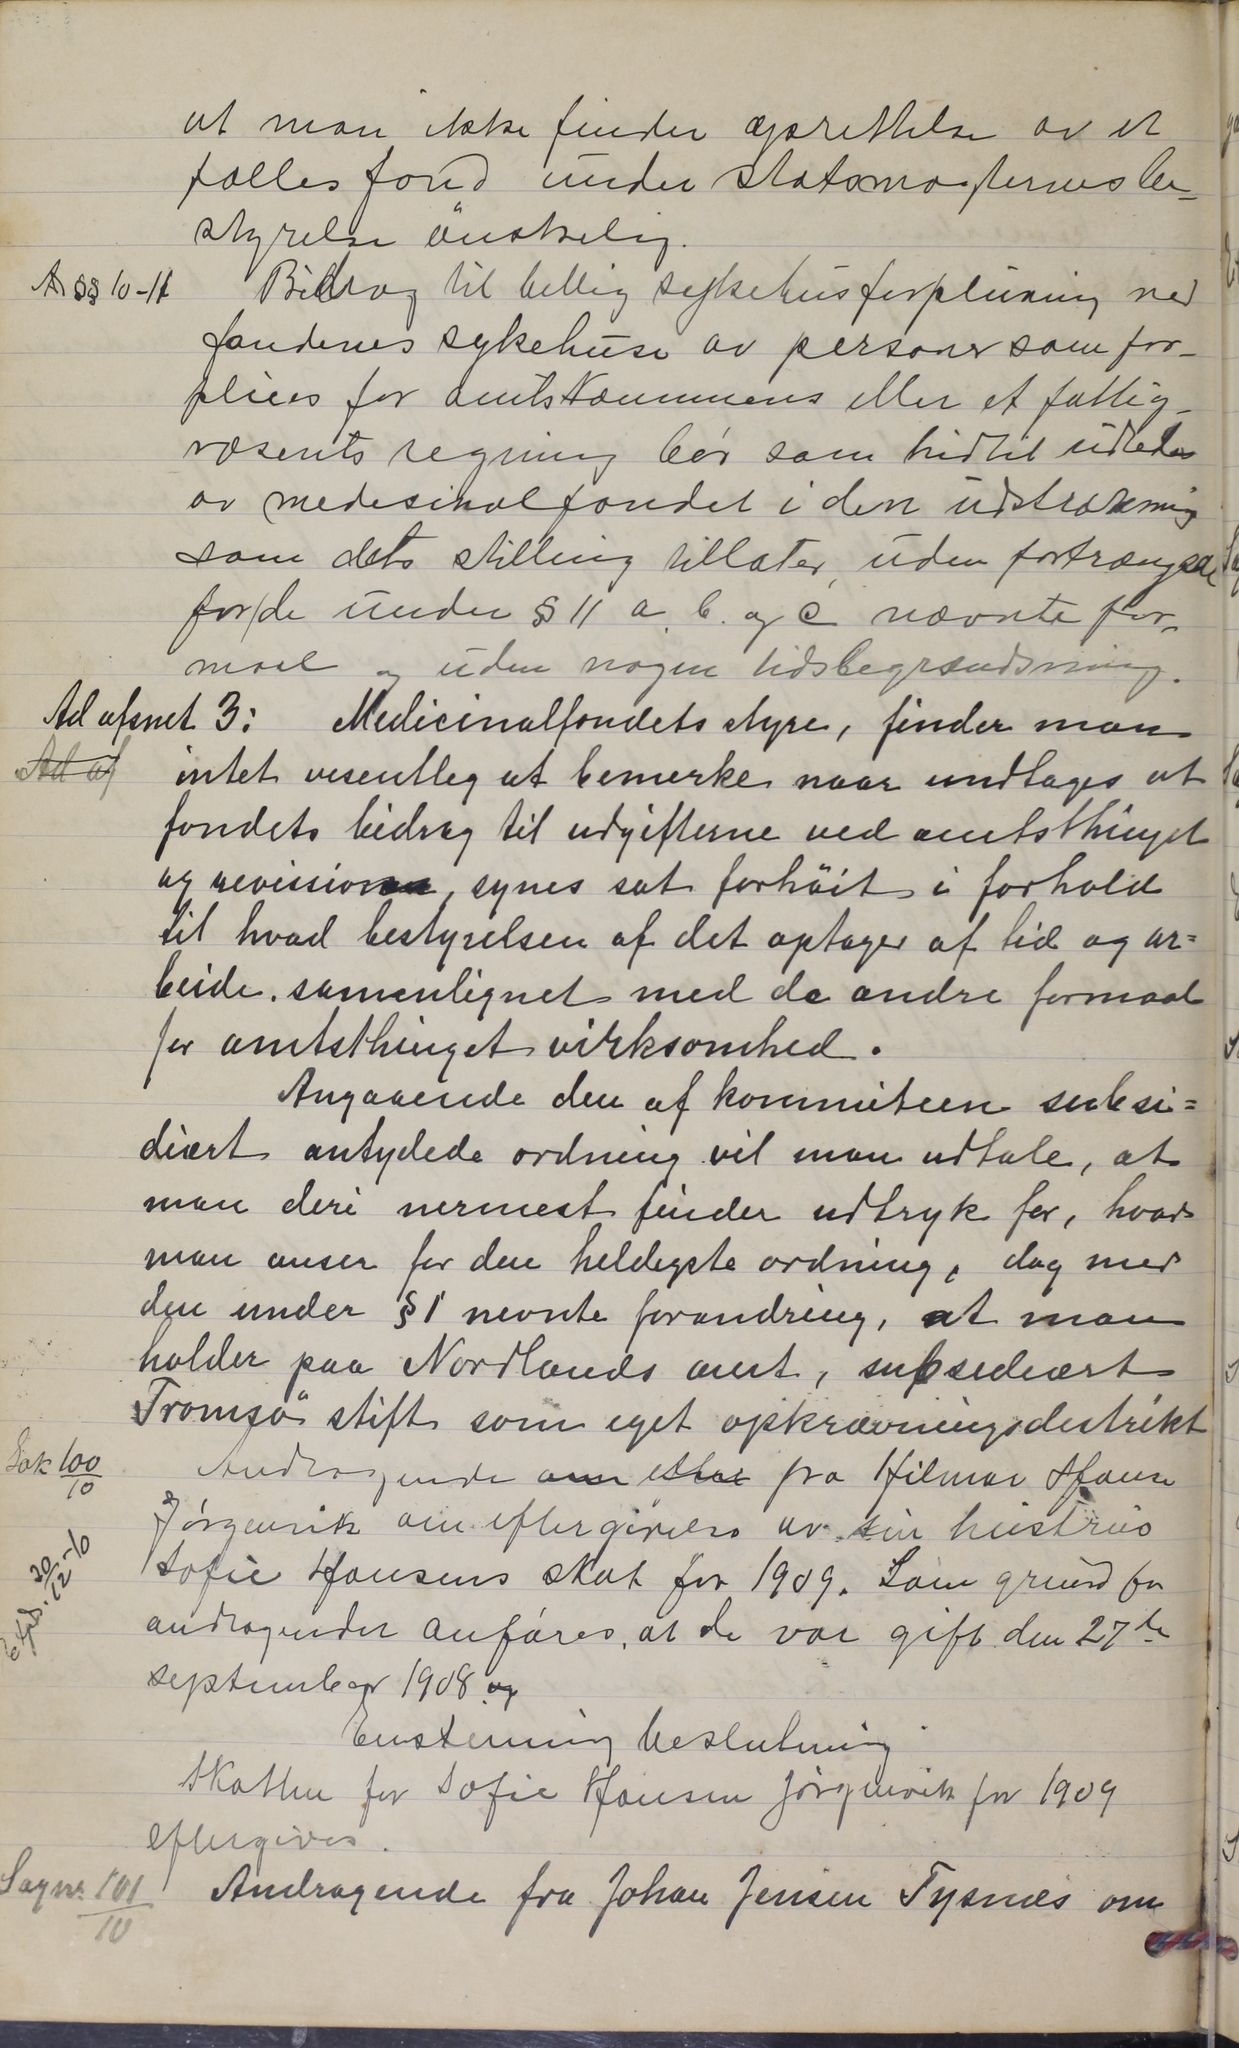 at man ikke finder oprettelse av et
fælles fond under statsmagternes be-
styrelse ønskelig.
Ad §§ 10-11 Bidrag til billig sykehusforpleining ved
fondenes sykehuse av personer som for-
pleies for amtskommunens eller et fattig-
væsents regning bør som hidtil utledes
av medesinalfondet i den utstrækning
som dets stilling tillater, uden fortrængsel
for de under § 11 a, b. og c nævnte for-
maal og uden nogen tidsbegrændsning.
Ad afsnet 3: Medicinalfondets styre, finder man
Ad af intet vesentleg at bemerke naar undtages at
fondets bidrag til udgifterne ved amtsthinget
og revission, synes sat forhöit i forhold
til hvad bestyrelsen af det optager af tid og ar=
beide, samenlignet med de andre formaal
for amtsthinget virksomhed.
Angaaende den af kommiteen subsi=
diært antydede ordning vil man udtale, at
man deri nermest finder udtryk for, hvad
man anser for den heldigste ordning, dog med
den under § 1 nevnte forandring, at man
holder paa Nordlands amt, subsediært
Tromsö stift som eget opkrævningsdestrikt
Sak 100/10 Andragende om fra Hilmar Hansen
Jørgenvik om eftergivelse av sin hustrus
Exped. 20/12-10
Sofie Hansens skat for 1909. Som grund for
andragendet anføres, at de var gift den 27de
september 1908 og
Enstemmig beslutning
Skatten for Sofie Hansen Jørgenvik for 1909
eftergives.
Sagnr. 101/10 Andragende fra Johan Jensen Tysnes om